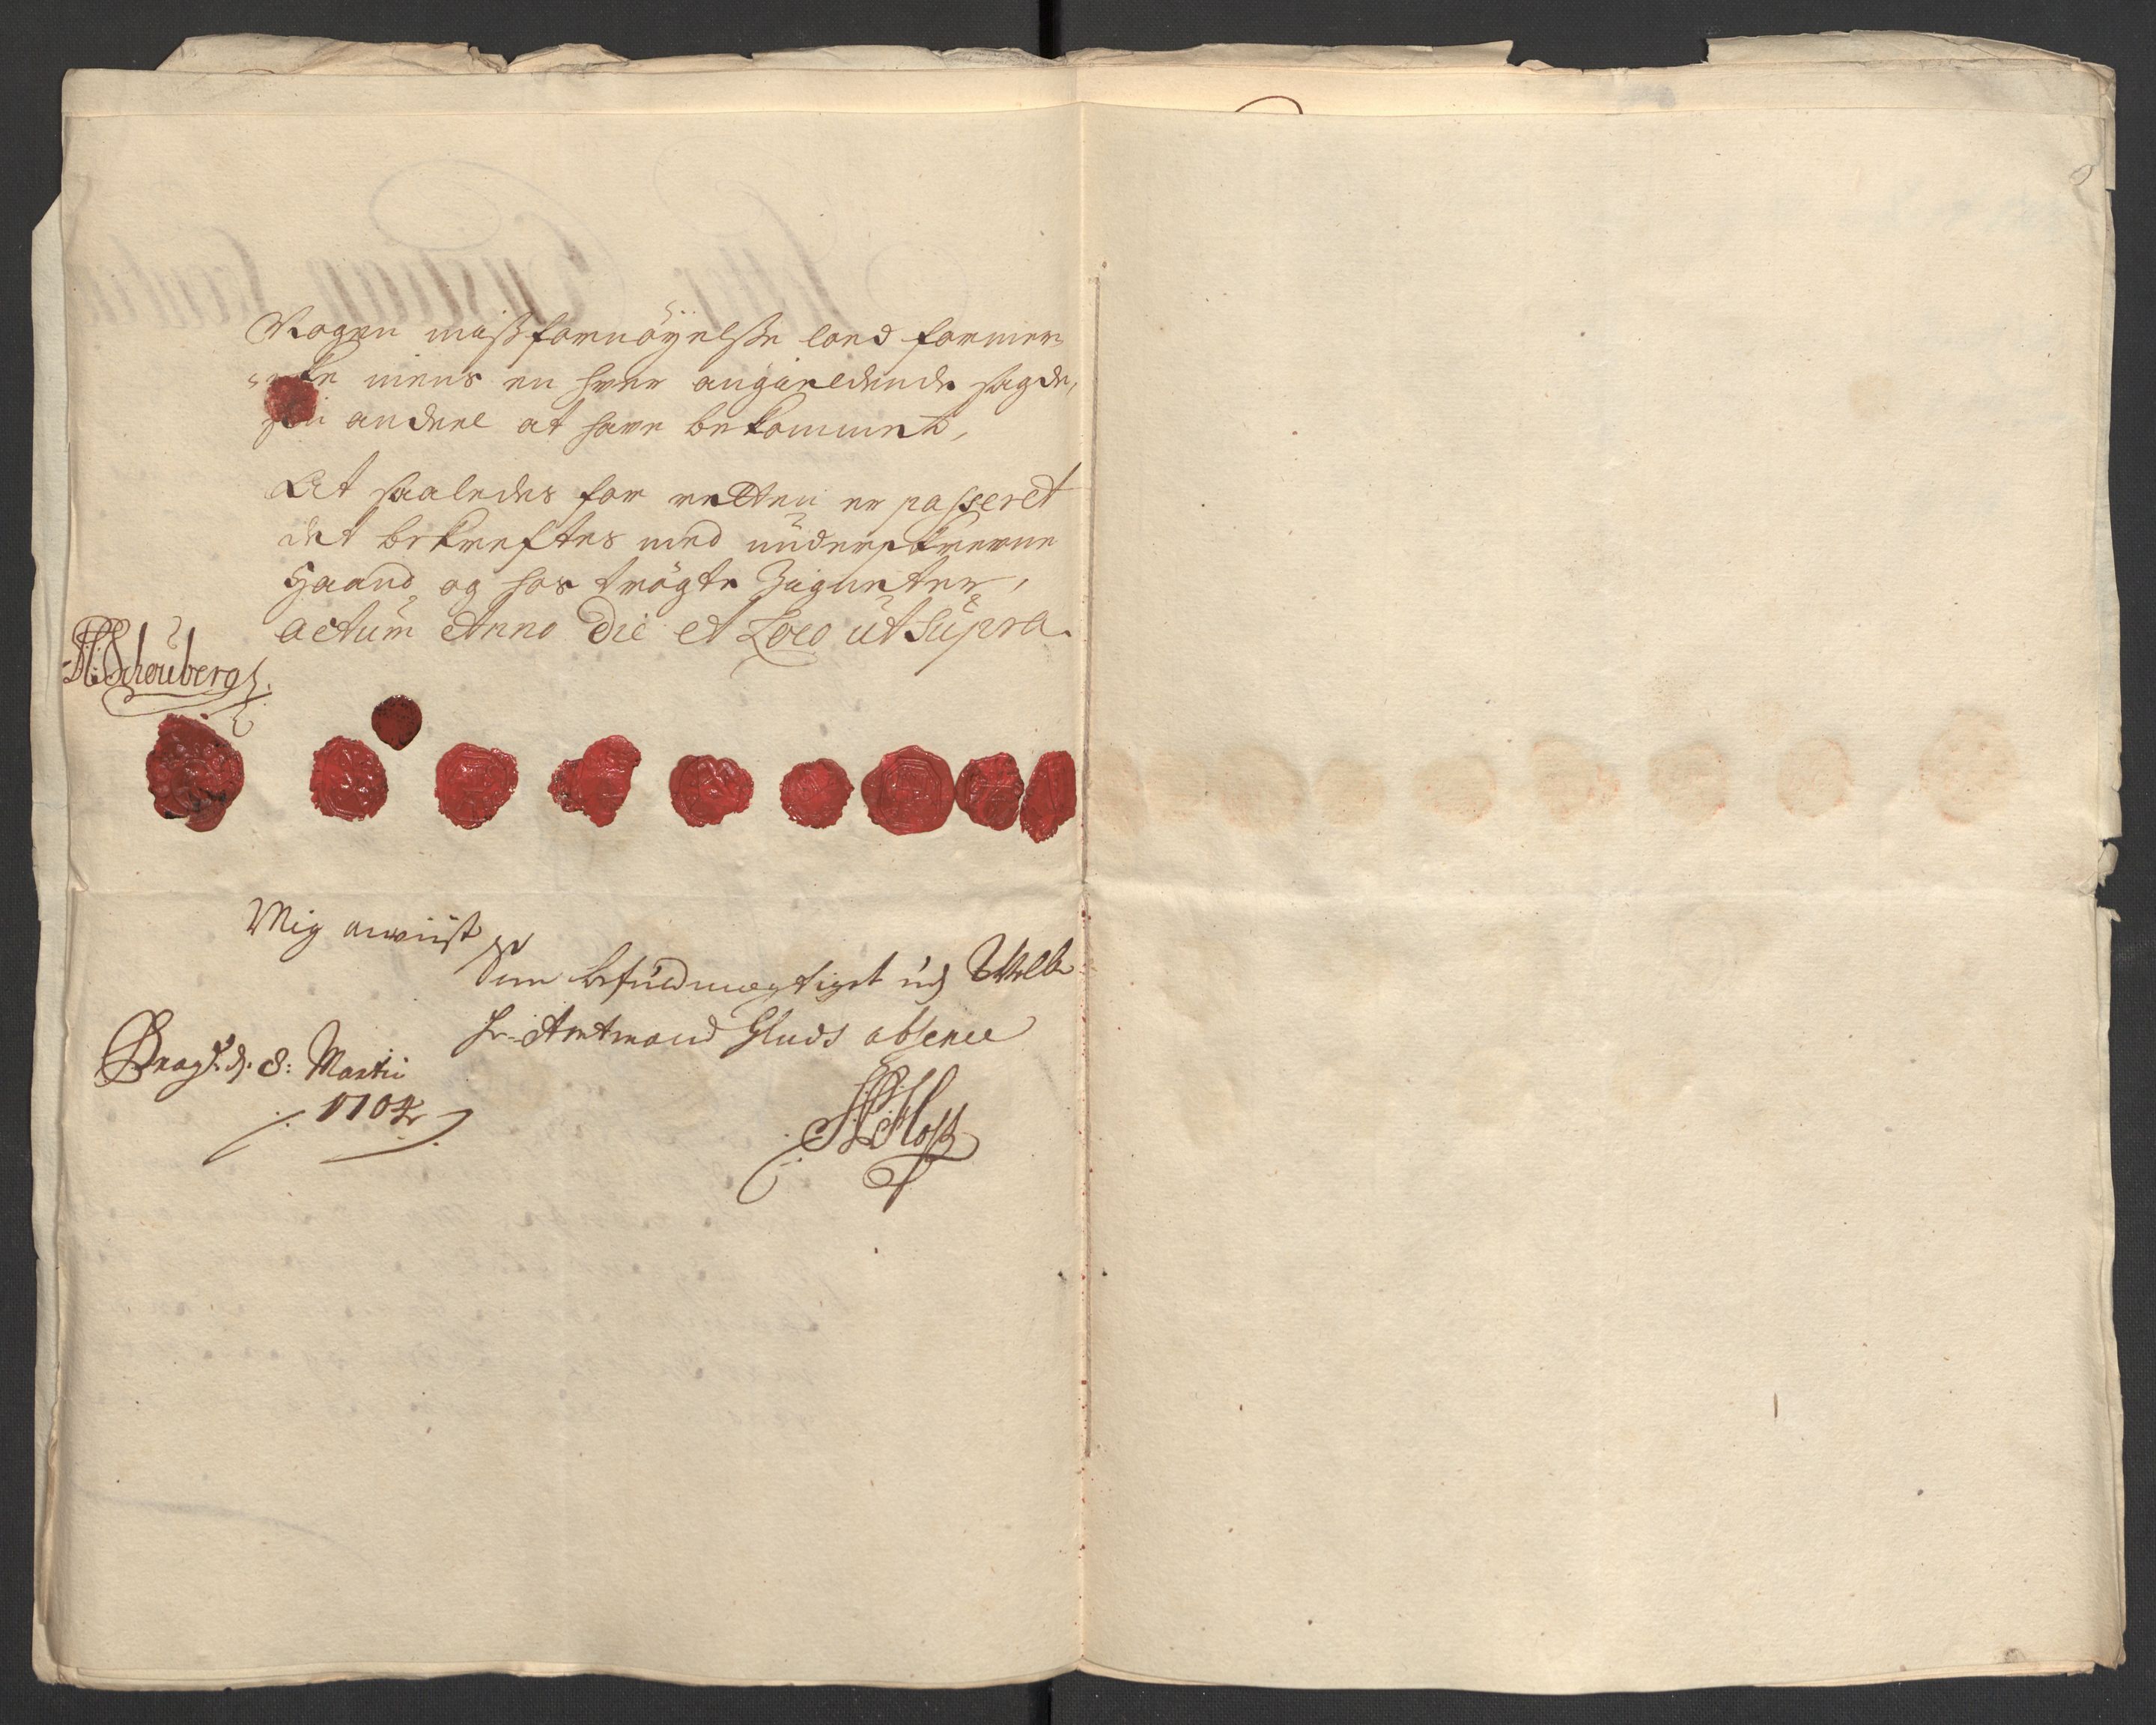 Nogen misfornöyelsse loed former,
mens en hver angieldende sagde,
andeel at have bekommet,
At saaledes for retten er passeret
det bekreftes med underskrevne
Haand og hos trögte Zigneter,
actum Anno Die et Loco ut Supra.
Schouberg
Mig anviist
Som befuldmegtiget udj Welb:
Hr. Amtmand Gluds absence
Brag: d. 8: Martii
1704